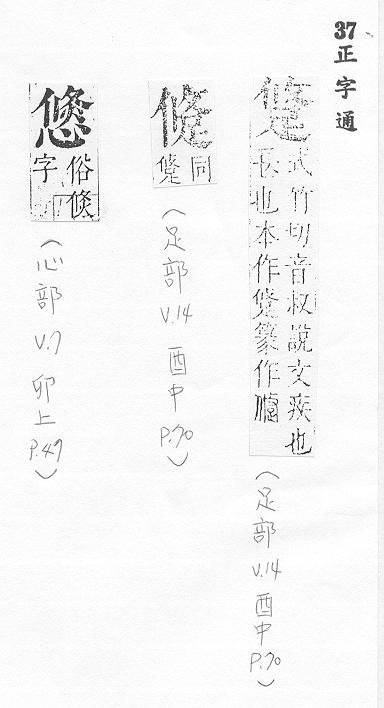 37 正字通
式竹切音叔說文疾也
長也本作篆作
(足部 V.14 酉中 P.70)
同
(足部 V.14 酉中 P.70)
俗倐
字
(心部 V.7 卯上 P.49)